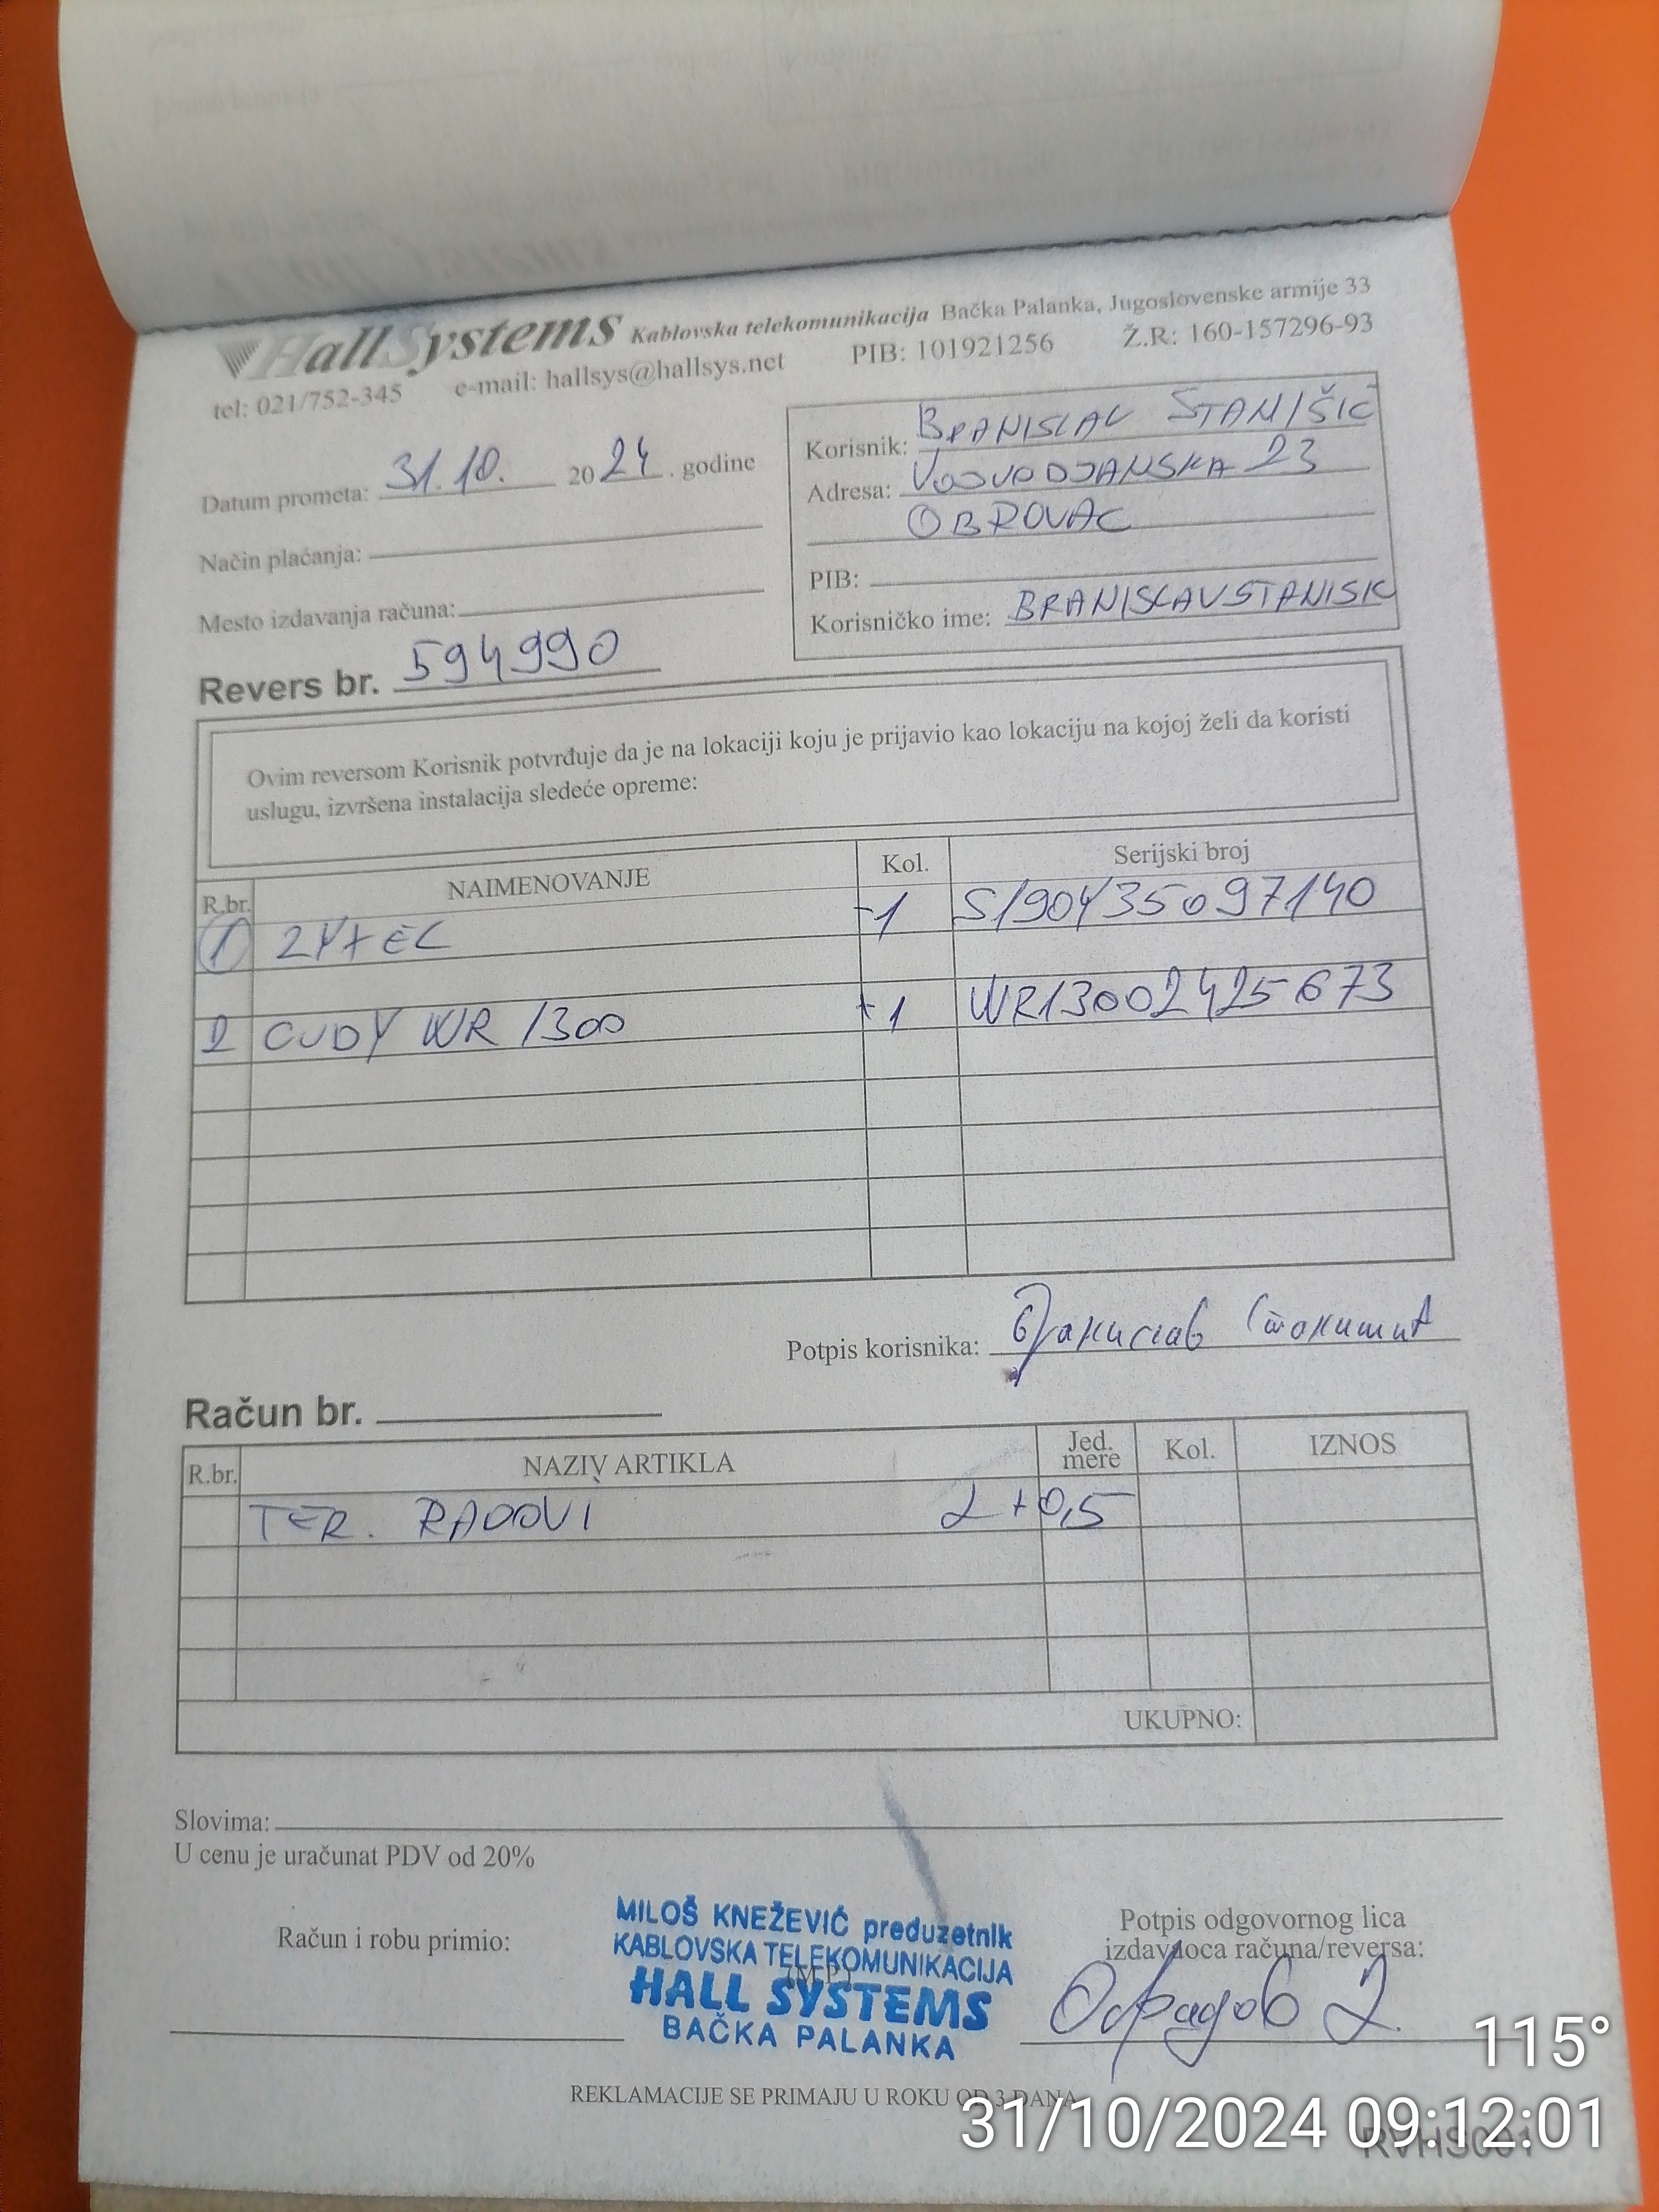 HallSystems Kablovska telekomunikacija Bačka Palanka, Jugoslovenske armije 33
tel: 021/752-345 e-mail: hallsys@hallsys.net PIB: 101921256 Ž.R: 160-157296-93
Datum prometa: 31.10. 2024. godine
Način plaćanja:
Mesto izdavanja računa:
Revers br. 594990
Korisnik: BRANISLAV STANIŠIĆ
Adresa: VOJVODJANSKA 23
OBROVAC
PIB:
Korisničko ime: BRANISLAVSTANISIC
Ovim reversom Korisnik potvrđuje da je na lokaciji koju je prijavio kao lokaciju na kojoj želi da koristi
uslugu, izvršena instalacija sledeće opreme:
R.br. NAIMENOVANJE Kol. Serijski broj
1 ZYXEL -1 S190Y35097140
2 CUDY WR 1300 +1 WR13002425673
Potpis korisnika: Бранислав Станишић
Račun br.
R.br. NAZIV ARTIKLA Jed. mere Kol. IZNOS
TER. RADOVI 2+0,5
UKUPNO:
Slovima:
U cenu je uračunat PDV od 20%
Račun i robu primio:
MILOŠ KNEŽEVIĆ preduzetnik
KABLOVSKA TELEKOMUNIKACIJA
(M.P.)
HALL SYSTEMS
BAČKA PALANKA
Potpis odgovornog lica
izdavaoca računa/reversa:
REKLAMACIJE SE PRIMAJU U ROKU OD 3 DANA
115°
31/10/2024 09:12:01
RVHS001